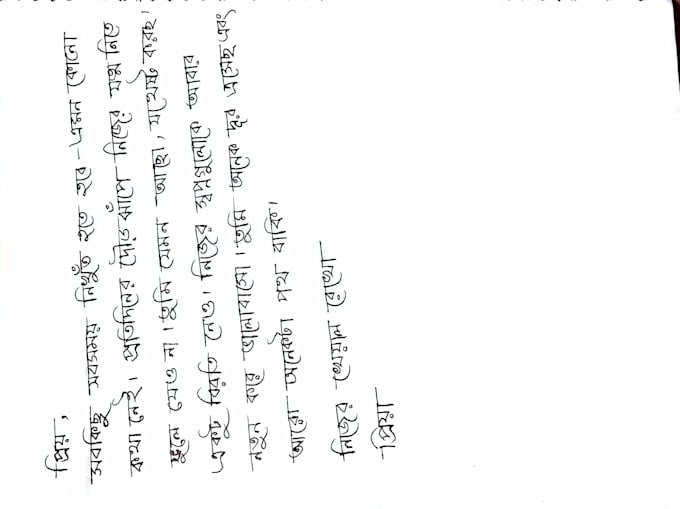 প্রিয়,
সবকিছু সবসময় নিখুঁত হতে হবে - এমন কোনো
কথা নেই। প্রতিদিনের দৌড়ঝাঁপে নিজের যত্ন নিতে
ভুলে যেও না। তুমি যেমন আছো, যথেষ্ট করছ।
একটু বিরতি নেও। নিজের স্বপ্নগুলোকে আবার
নতুন করে ভালোবাসো। তুমি অনেক দূর এসেছ এবং
আরো অনেকটা পথ বাকি।
নিজের খেয়াল রেখো
প্রিয়া